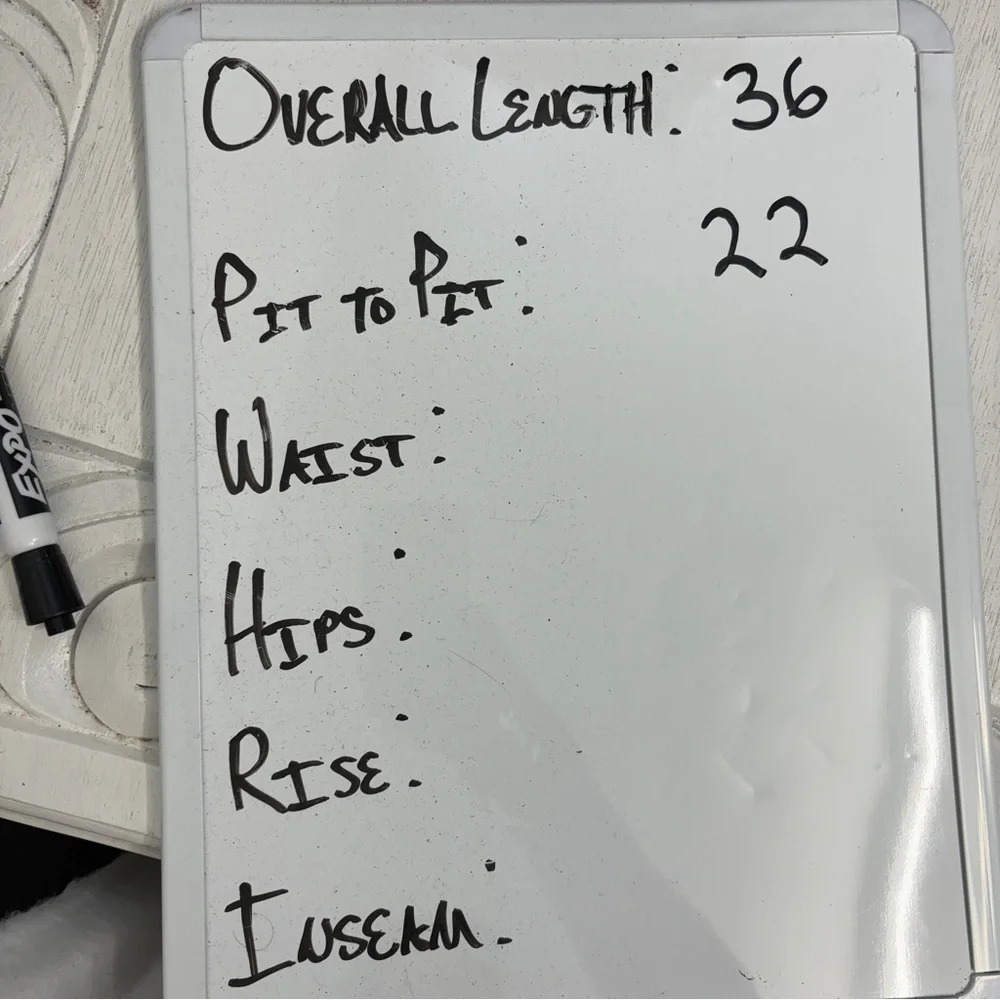 OVERALL LENGTH: 36
PIT TO PIT: 22
WAIST:
HIPS:
RISE:
INSEAM:
EXPO